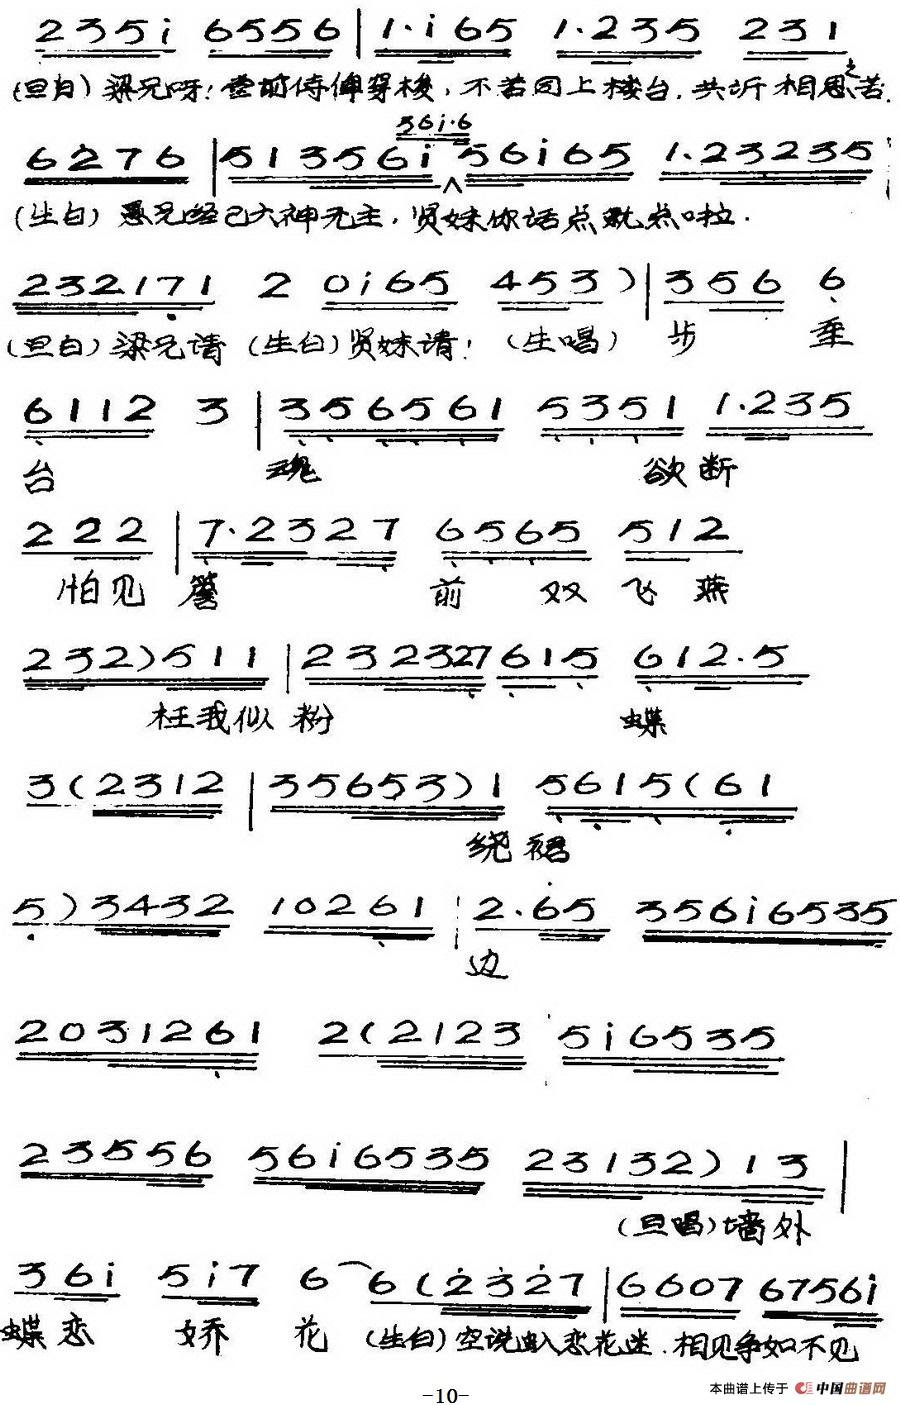 235i 6556 | 1·i 65 1·235 231
(旦白)梁兄呀!堂前侍婢穿梭,不若同上楼台,共诉相思之苦.
56i·6
6276 | 51356i 56i65 1·23235
(生白)愚兄经已六神无主,贤妹你话点就点啦.
232171 2 0i65 453) | 356 6
(旦白)梁兄请 (生白)贤妹请! (生唱) 步 坐
6112 3 | 356561 5351 1·235
台 魂 欲断
2 22 | 7·2327 6565 512
怕见 簷 前 双飞燕
232)511 | 232327615 612·5
枉我似粉 蝶
3(2312 | 35653)1 5615(61
绕裙
5)3432 10261 2·65 356i6535
边
2031261 2(2123 5i6535
23556 56i6535 23132)13 |
(旦唱)墙外
36i 5i7 6 6(2327 | 6607 6756i
蝶恋 娇 花 (生白)空说恋花迷.相见争如不见
-10-
本曲谱上传于 中国曲谱网